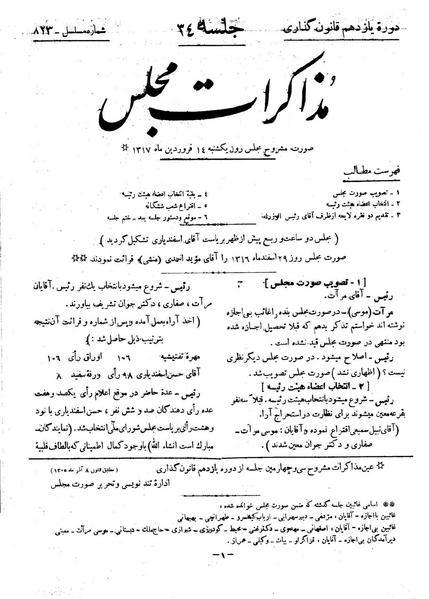 دورهٔ یازدهم قانون گذاری
جلسه ۳۴
شماره مسلسل - ۸۲۳
مذاکرات مجلس
صورت مشروح مجلس روز یکشنبه ۱۴ فروردین ماه ۱۳۱۷ *
فهرست مطالب
۱ - تصویب صورت مجلس
۲ - انتخاب اعضاء هیئت رئیسه
۳ - تقدیم دو فقره لایحه از طرف آقای رئیس الوزراء
۴ - بقیهٔ انتخاب اعضاء هیئت رئیسه
۵ - اقتراع شعب ششگانه
۶ - موقع و دستور جلسه بعد - ختم جلسه
( مجلس دو ساعت و ربع پیش از ظهر بریاست آقای اسفندیاری تشکیل گردید )
صورت مجلس روز ۲۹ اسفندماه ۱۳۱۶ را آقای مؤید احمدی (منشی) قرائت نمودند **
[ ۱ - تصویب صورت مجلس ]
رئیس - آقای مرآت.
مرآت (موسی) - در صورت مجلس بنده را غائب بی اجازه
نوشته اند خواستم تذکر بدهم که قبلا تحصیل اجازه شده
بود منتهی در صورت مجلس قید نشده است.
رئیس - اصلاح میشود. در صورت مجلس دیگر نظری
نیست؟ (اظهاری نشد) صورت مجلس تصویب شد.
[ ۲ - انتخاب اعضاء هیئت رئیسه ]
رئیس - شروع میشود بانتخاب هیئت رئیسه. قبلا سه نفر
بقرعه معین میشوند برای نظارت در استخراج آراء.
(آقای نبیل سمیعی اقتراع نموده و آقایان: موسی مرآت -
صفاری و دکتر جوان معین شدند).
رئیس - شروع میشود بانتخاب یك نفر رئیس. آقایان
مرآت، صفاری، دکتر جوان تشریف بیاورند.
( اخذ آراء بعمل آمده و پس از شماره و قرائت آن نتیجه
بترتیب ذیل حاصل شد: )
مهرهٔ تفتیشیه ۱۰۶ اوراق رأی ۱۰۶
آقای حسن اسفندیاری ۹۸ رأی ورقه سفید ۸
رئیس - عدهٔ حاضر در موقع اعلام رأی یکصد و هفت
عده رأی دهندگان صد و شش نفر، حسن اسفندیاری با نود
و هشت رأی بریاست مجلس شورای ملی انتخاب شد. (نمایندگان-
مبارك است انشاء الله) با وجود کمال اطمینانی که بالطاف قلبیهٔ
* عین مذاکرات مشروح سی و چهارمین جلسه از دوره یازدهم قانون گذاری (مطابق قانون ۸ آذر ماه ۱۳۰۵)
اداره تند نویسی و تحریر صورت مجلس
** اسامی غائبین جلسه گذشته که ضمن صورت مجلس خوانده شده:
غائبین با اجازه - آقایان: مژدهی - دبیر سهرابی - ارباب کیخسرو - طهرانچی - بهبهانی
غائبین بی اجازه - آقایان: اصفهانی - مهدوی - دکتر غنی - یکانی - گودرزی - شیرازی - حاج ملك - دبستانی - موسی مرآت - معینی
دیر آمدگان بی اجازه - آقایان: قراگزلو - بیات - وکیلی - همراز.
-۱-